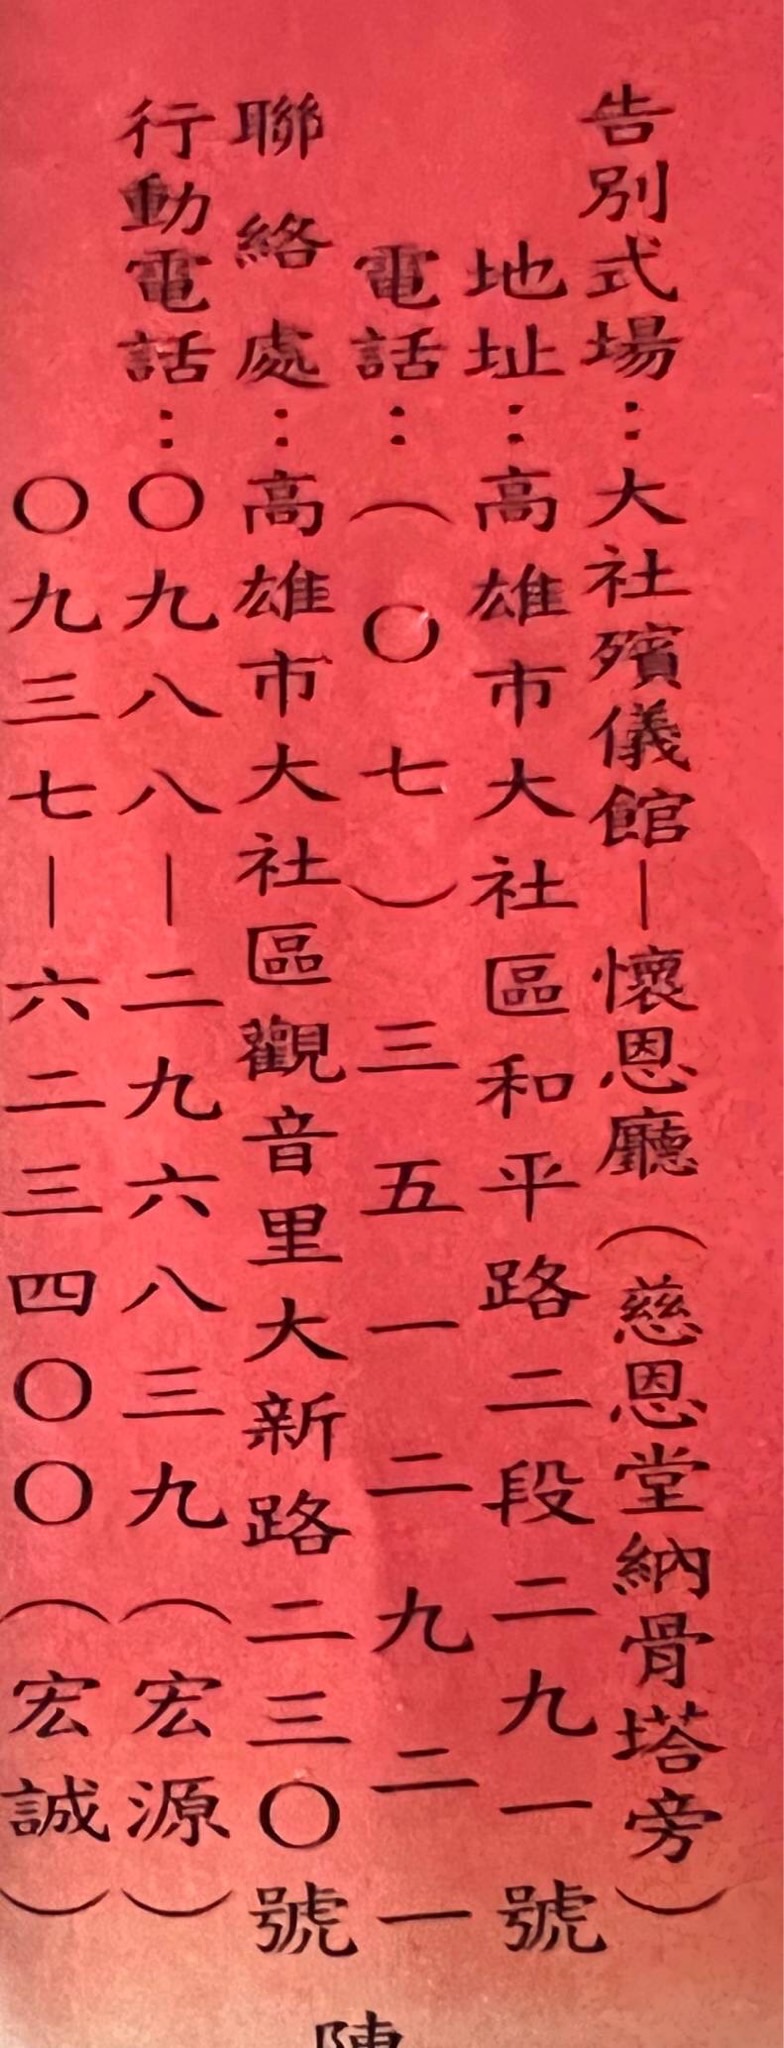 告別式場：大社殯儀館－懷恩廳（慈恩堂納骨塔旁）
地址：高雄市大社區和平路二段二九一號
電話：（〇七）三五一二九二一
聯絡處：高雄市大社區觀音里大新路二三〇號
行動電話：〇九八八－二九六八三九（宏源）
〇九三七－六二三四〇〇（宏誠）
陳